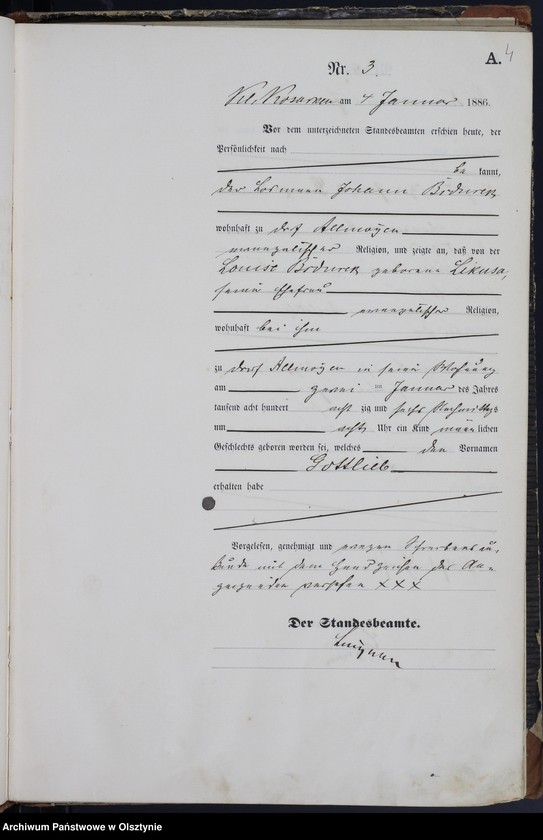 A. 4
Nr. 3.
Kl. Kosarken am 4 Januar 1886.
Vor dem unterzeichneten Standesbeamten erschien heute, der
Persönlichkeit nach
be kannt,
der Losmann Johann
wohnhaft zu Dorf Allmoyen
evangelischer Religion, und zeigte an, daß von der
Louise geborene Likusa,
seine Ehefrau
evangelischer Religion,
wohnhaft bei ihm
zu Dorf Allmoyen in seine Wohnung
am zwei im Januar des Jahres
tausend acht hundert acht zig und sechs Nachmittags
um acht Uhr ein Kind männ lichen
Geschlechts geboren worden sei, welches den Vornamen
Gottlieb
erhalten habe
Vorgelesen, genehmigt und wegen Schreibens un,
kunde mit dem Handzeichen des An=
zeigenden versehen XXX
Der Standesbeamte.
Archiwum Państwowe w Olsztynie